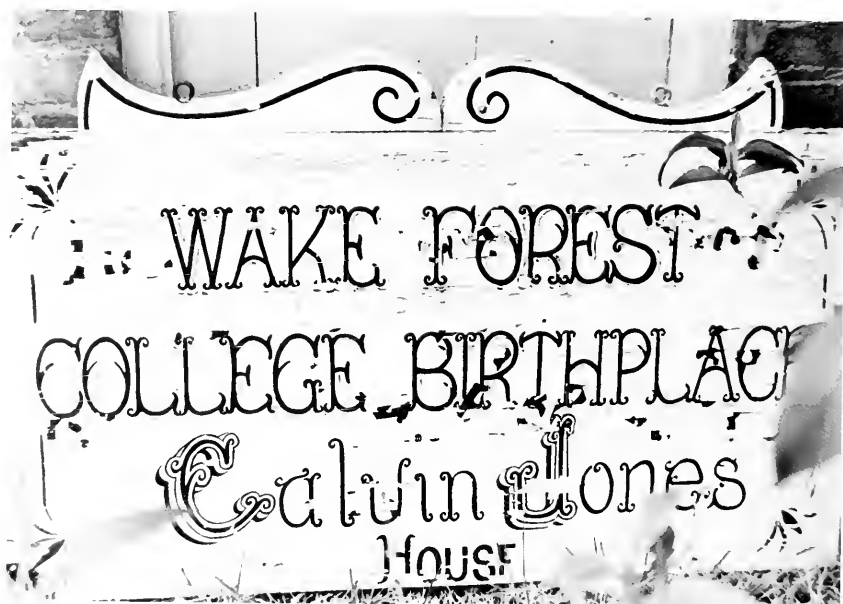 WAKE FOREST
COLLEGE BIRTHPLACE
Calvin Jones
HOUSE